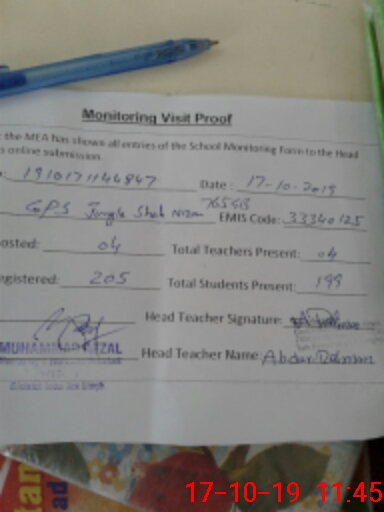 Monitoring Visit Proof
the MEA has shown all entries of the School Monitoring Form to the Head
online submission.
1910171144847 Date: 17-10-2019
GPS Jungle Shah Nizam 76543 EMIS Code: 33340125
osted: 04 Total Teachers Present: 04
egistered: 205 Total Students Present: 199
Head Teacher Signature:
MUHAMMAD Head Teacher Name: Abdur Rahman
17-10-19 11:45